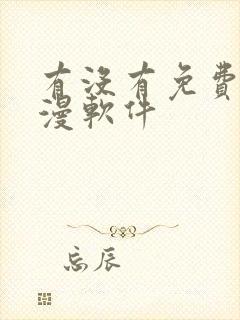 有没有免費
漫軟件
忘辰